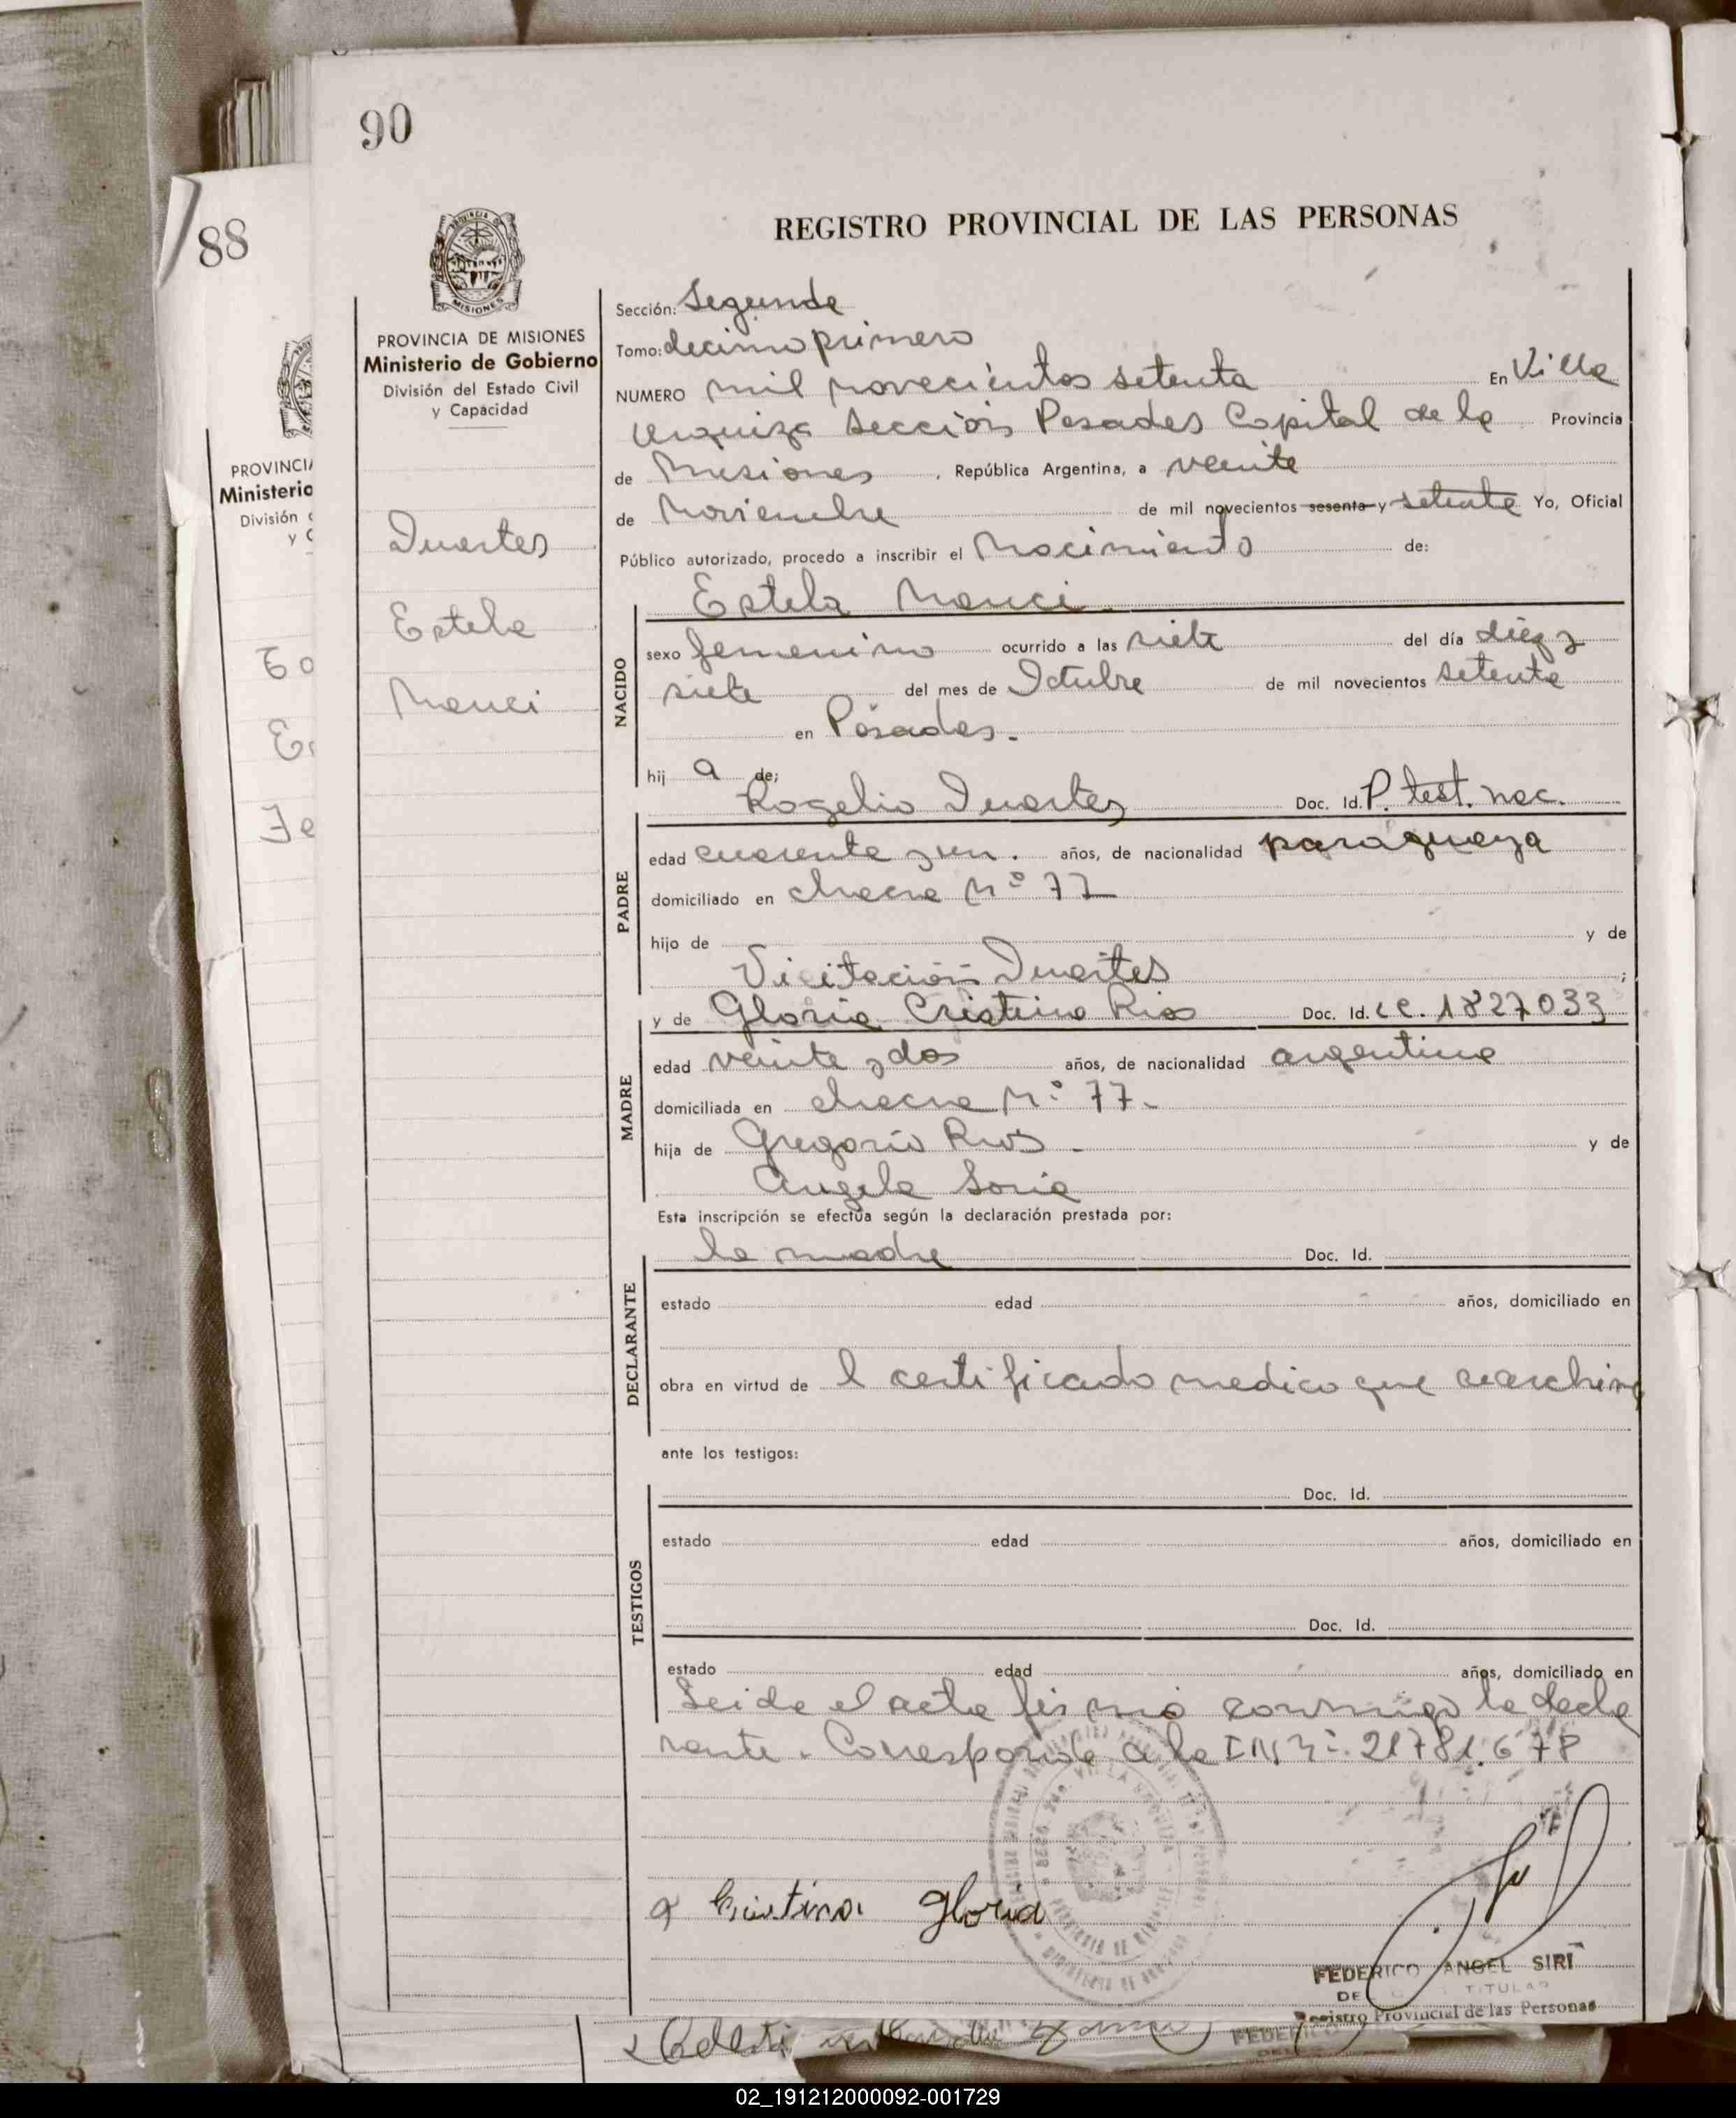 90
88
REGISTRO PROVINCIAL DE LAS PERSONAS
PROVINCIA DE MISIONES
Ministerio de Gobierno
División del Estado Civil
y Capacidad
Duartes
Estela
Nanci
Sección: Segunda
Tomo: decimo primero
NUMERO mil novecientos setenta En Villa
Urquiza Sección Posadas Capital de la Provincia
de Misiones, República Argentina, a veinte
de Noviembre de mil novecientos sesenta y setenta Yo, Oficial
Público autorizado, procedo a inscribir el Nacimiento de:
Estela Nanci.
NACIDO
sexo femenino ocurrido a las siete del día diez y
siete del mes de Octubre de mil novecientos setenta
en Posadas.
hij a de;
Rogelio Duartes Doc. Id. P. test. nac.
PADRE
edad cuarenta y un. años, de nacionalidad paraguaya
domiciliado en chacra Nº 77
hijo de y de
Vicitación Duartes ;
y de Gloria Cristina Rios Doc. Id. LC. 1827033
MADRE
edad veinte y dos años, de nacionalidad argentina
domiciliada en chacra Nº 77.
hija de Gregorio Rios y de
Angela Soria
Esta inscripción se efectúa según la declaración prestada por:
la madre Doc. Id.
DECLARANTE
estado edad años, domiciliado en
obra en virtud de l certificado medico que
ante los testigos:
Doc. Id.
TESTIGOS
estado edad años, domiciliado en
Doc. Id.
estado edad años, domiciliado en
Leida el acta firmó conmigo la decla
rante. Corresponde a la 21781.678
Cristina Gloria
FEDERICO ANGEL SIRI
TITULAR
Registro Provincial de las Personas
02_191212000092-001729